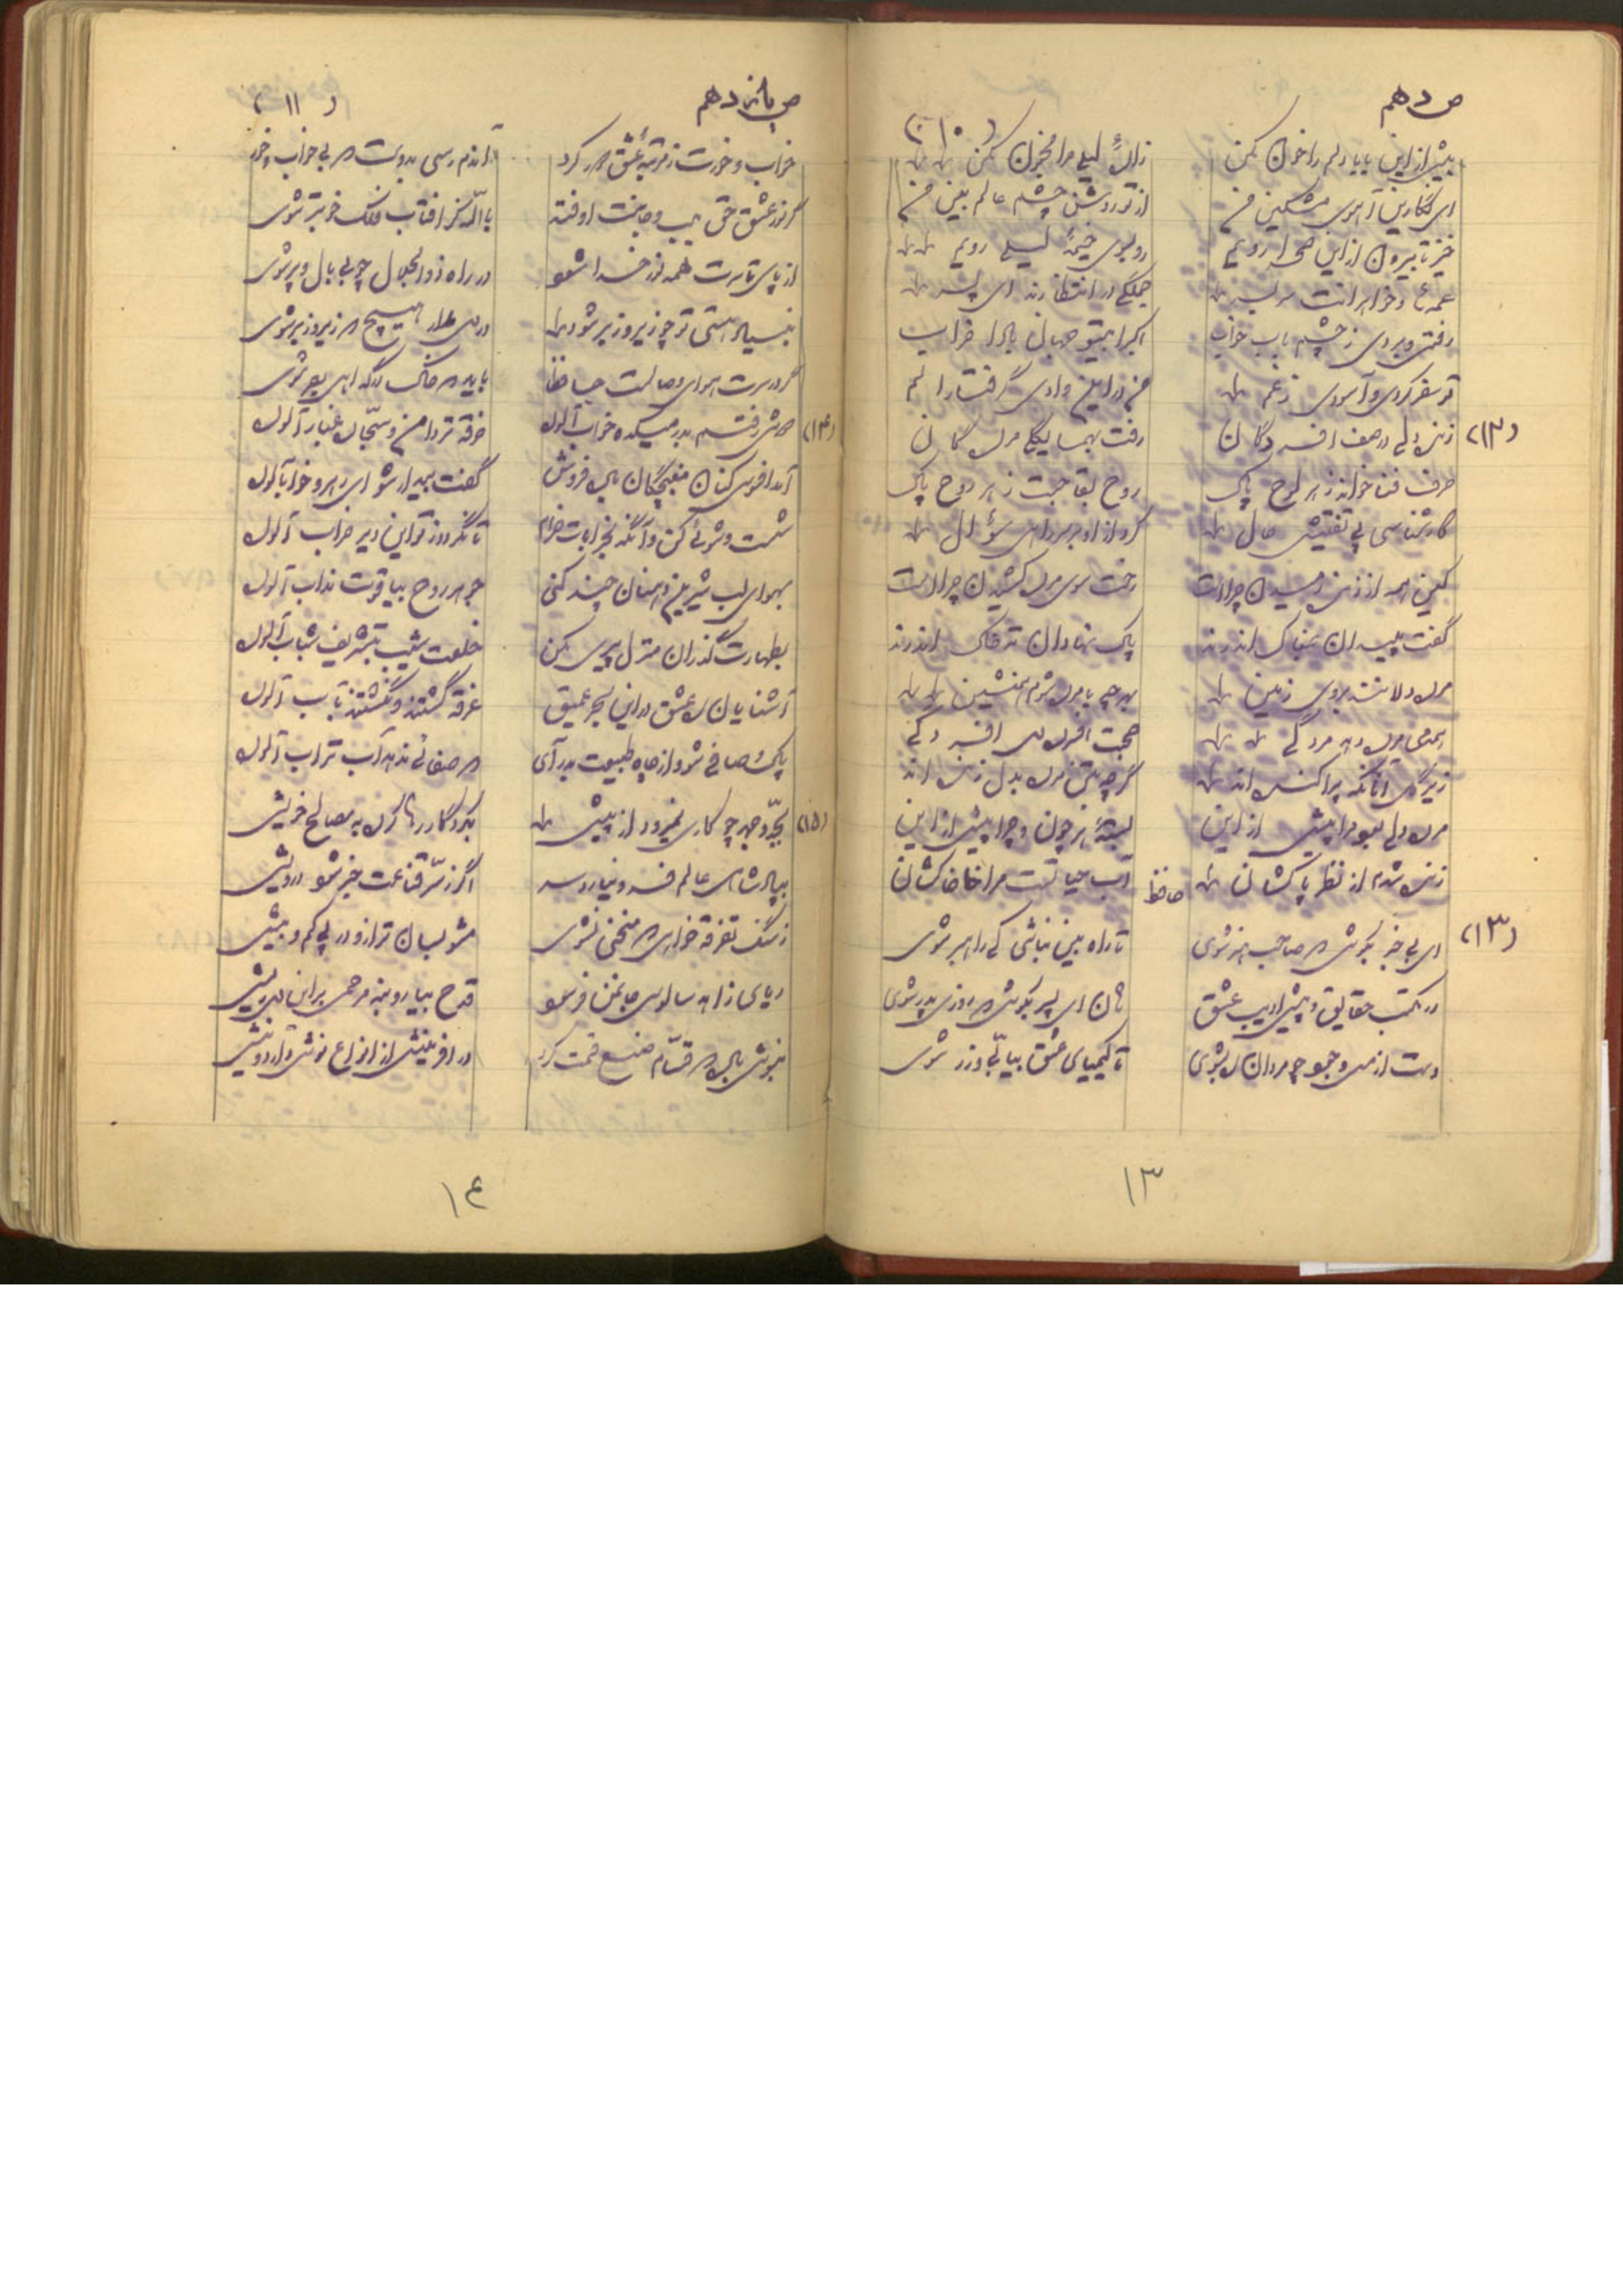 ص دهم
(۱۰)
بیش از این بابا دلم را خون مکن زادهٔ لیلی مرا مجنون مکن
ای نگارین آهوی مشکین من از تو روشن چشم عالم بین من
خیز تا بیرون از این صحرا رویم رو بسوی خیمهٔ لیلی رویم
جملگی در انتظارند ای پسر
رفتی و بردی ز چشم باب خواب اکبرا بیتو جهان بادا خراب
تو سفر کردی و آسودی ز غم من در این وادی گرفتار الم
(۱۲)
زنده دلی در صف افسردگان رفت بهمسایگی مردگان
حرف فنا خواند ز هر لوح پاک روح بقا جست ز هر روح پاک
کارشناسی پی تفتیش حال کرد از او بر سر راهی سؤال
کین همه از زنده رمیدن چراست رخت سوی مرده کشیدن چراست
گفت پلیدان بمغاک اندرند پاک نهادان ته خاک اندرند
مرده دلانند بروی زمین بهر چه با مرده شوم همنشین
همدمی مرده دهد مردگی صحبت افسرده دل افسردگی
زیر گل آنانکه پراکنده اند گرچه بتن مرده بدل زنده اند
مرده دلی بود مرا پیش از این بستهٔ هر چون و چرا پیش از این
زنده شدم از نظر پاکشان آب حیات است مرا خاکشان
حافظ
(۱۳)
ای بی خبر بکوش که صاحب خبر شوی تا راه بین نباشی کی راهبر شوی
در مکتب حقایق و پیش ادیب عشق هان ای پسر بکوش که روزی پدر شوی
دست از مس وجود چو مردان ره بشوی تا کیمیای عشق بیابی و زر شوی
۱۳
ص یازدهم
(۱۱)
خواب و خورت ز مرتبهٔ عشق دور کرد آندم رسی بدوست که بی خواب و خور
گر نور عشق حق بدل و جانت اوفتد بالله کز آفتاب فلک خوبتر شوی
از پای تا سرت همه نور خدا شود در راه ذوالجلال چو بی پا و سر شوی
بنیاد هستی تو چو زیر و زبر شود در دل مدار هیچ که زیر و زبر شوی
گر در سرت هوای وصالست حافظا باید که خاک درگه اهل بصر شوی
(۱۴)
دوش رفتم بدر میکده خواب آلوده خرقه تر دامن و سجاده غبار آلوده
آمد افسوس کنان مغبچگان باده فروش گفت بیدار شو ای رهرو خواب آلوده
شست و شوئی کن و آنگه بخرابات خرام تا نگردد ز تو این دیر خراب آلوده
بهوای لب شیرین دهنان چند کنی جوهر روح بیاقوت مذاب آلوده
بطهارت گذران منزل پیری مکن خلعت شیب بتشریف شباب آلوده
آشنایان ره عشق در این بحر عمیق غرقه گشتند و نگشتند بآب آلوده
پاک و صافی شو و از چاه طبیعت بدر آی که صفائی ندهد آب تراب آلوده
(۱۵)
بجد و جهد چو کاری نمیرود از پیش بکردگار رها کرده به مصالح خویش
بپادشاهی عالم فرو نیارد سر اگر ز سر قناعت خبر شود درویش
ز سنگ تفرقه خواهی که منحنی نشوی مشو بسان ترازو در پی کم و بیش
ریای زاهد سالوس جان من فرسود قدح بیار و بنه مرهمی بر این دل ریش
بنوش باده که قسام صنع قسمت کرد در آفرینش از انواع نوش دارو نیش
۱۴